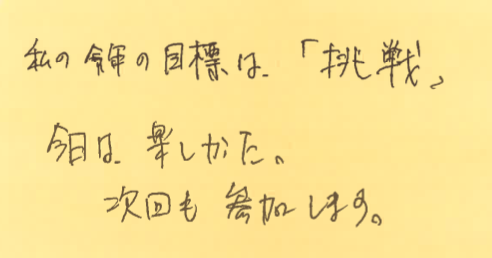 私の今年の目標は、「挑戦」
今日は、楽しかた。
次回も参加します。